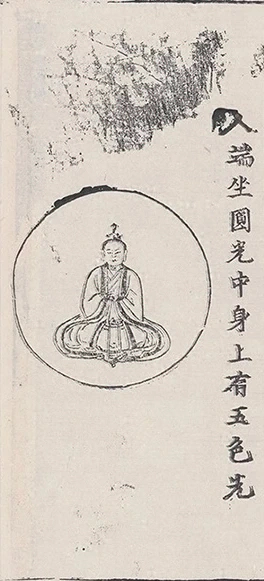 人端坐圓光中身上有五色光